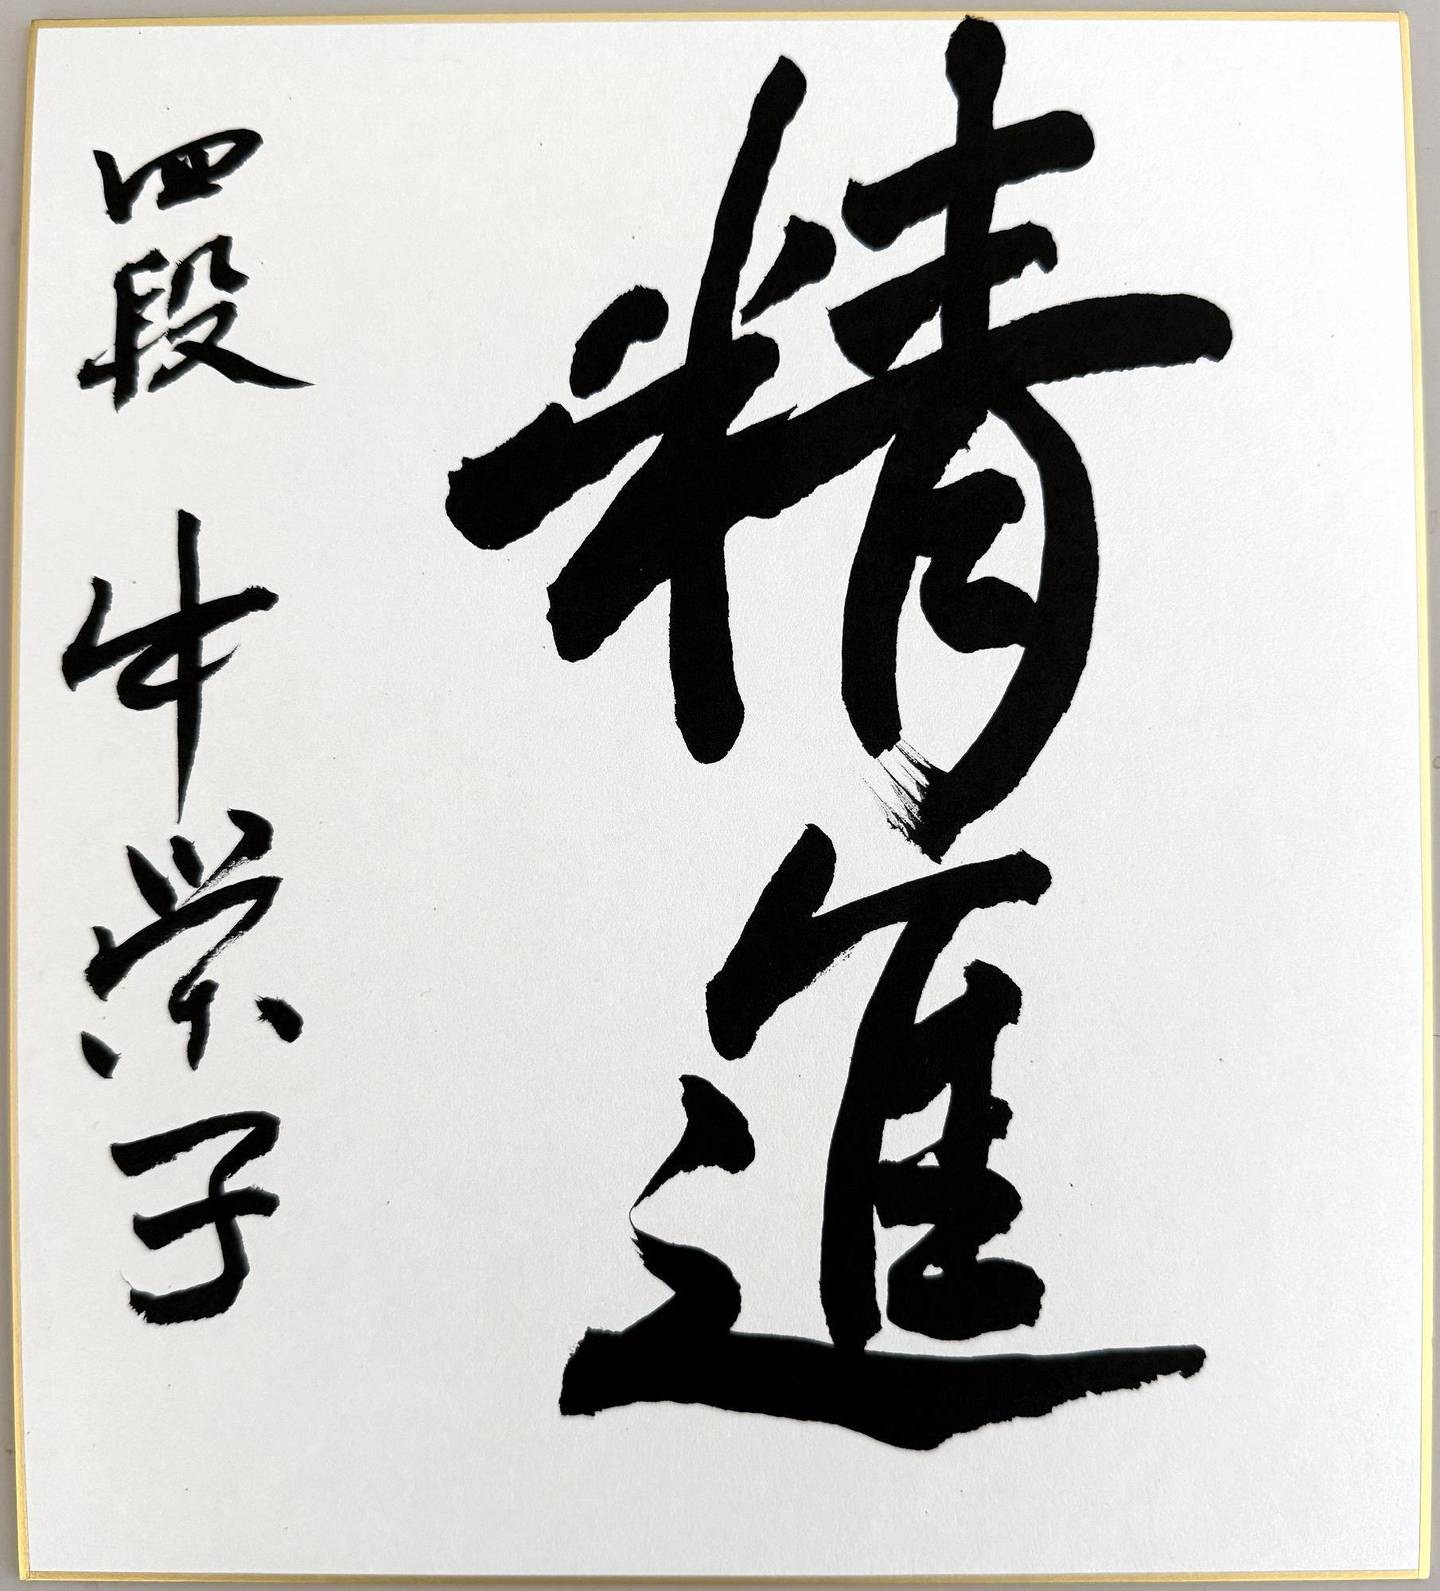 精進
四段 牛栄子